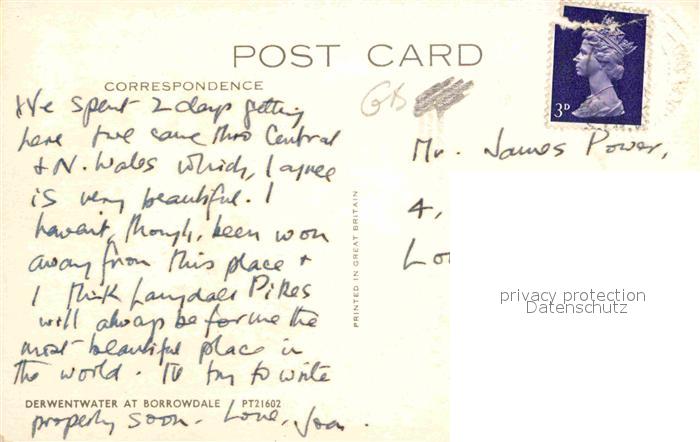 POST CARD
CORRESPONDENCE
We spent 2 days getting
here & we came thro Central
& N. Wales which, I agree
is very beautiful. I
haven't, though, been won
away from this place &
I think Langdale Pikes
will always be for me the
most beautiful place in
the world. I'll try to write
properly soon. Love, Joan.
DERWENTWATER AT BORROWDALE PT21602
PRINTED IN GREAT BRITAIN
GB
3D
Mr. James Power,
4,
Lo
privacy protection
Datenschutz